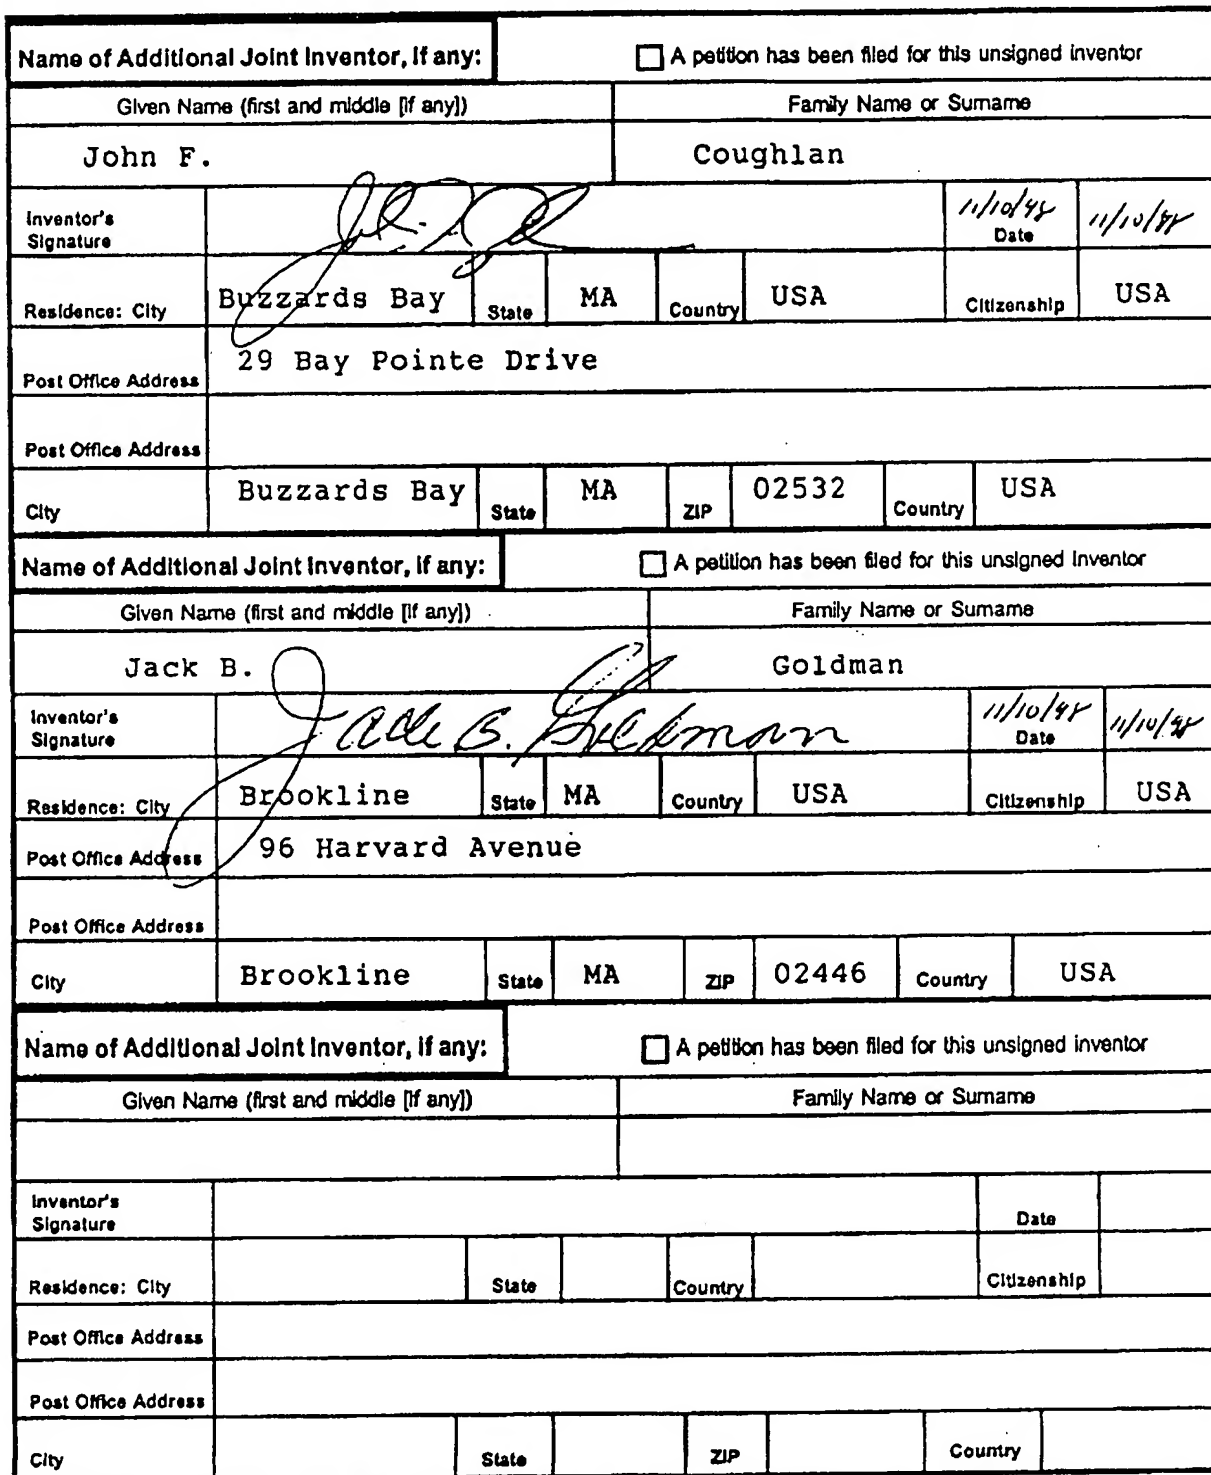 Name of Additional Joint Inventor, if any: A petition has been filed for this unsigned inventor
Given Name (first and middle [if any]) Family Name or Surname
John F. Coughlan
Inventor's Signature 11/10/98 Date 11/10/98
Residence: City Buzzards Bay State MA Country USA Citizenship USA
Post Office Address 29 Bay Pointe Drive
Post Office Address
City Buzzards Bay State MA ZIP 02532 Country USA
Name of Additional Joint Inventor, if any: A petition has been filed for this unsigned Inventor
Given Name (first and middle [if any]) Family Name or Surname
Jack B. Goldman
Inventor's Signature Jack B. Goldman 11/10/98 Date 11/10/98
Residence: City Brookline State MA Country USA Citizenship USA
Post Office Address 96 Harvard Avenue
Post Office Address
City Brookline State MA ZIP 02446 Country USA
Name of Additional Joint Inventor, if any: A petition has been filed for this unsigned inventor
Given Name (first and middle [if any]) Family Name or Surname
Inventor's Signature Date
Residence: City State Country Citizenship
Post Office Address
Post Office Address
City State ZIP Country